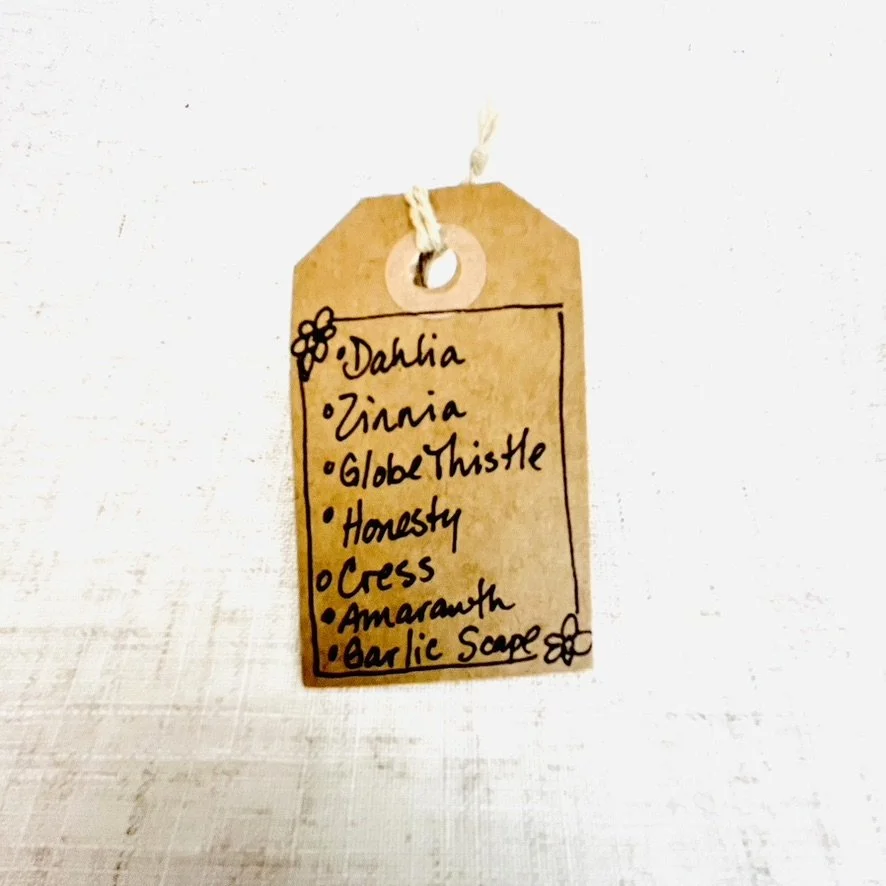 •Dahlia
•Zinnia
•Globe Thistle
•Honesty
•Cress
•Amaranth
•Garlic Scape